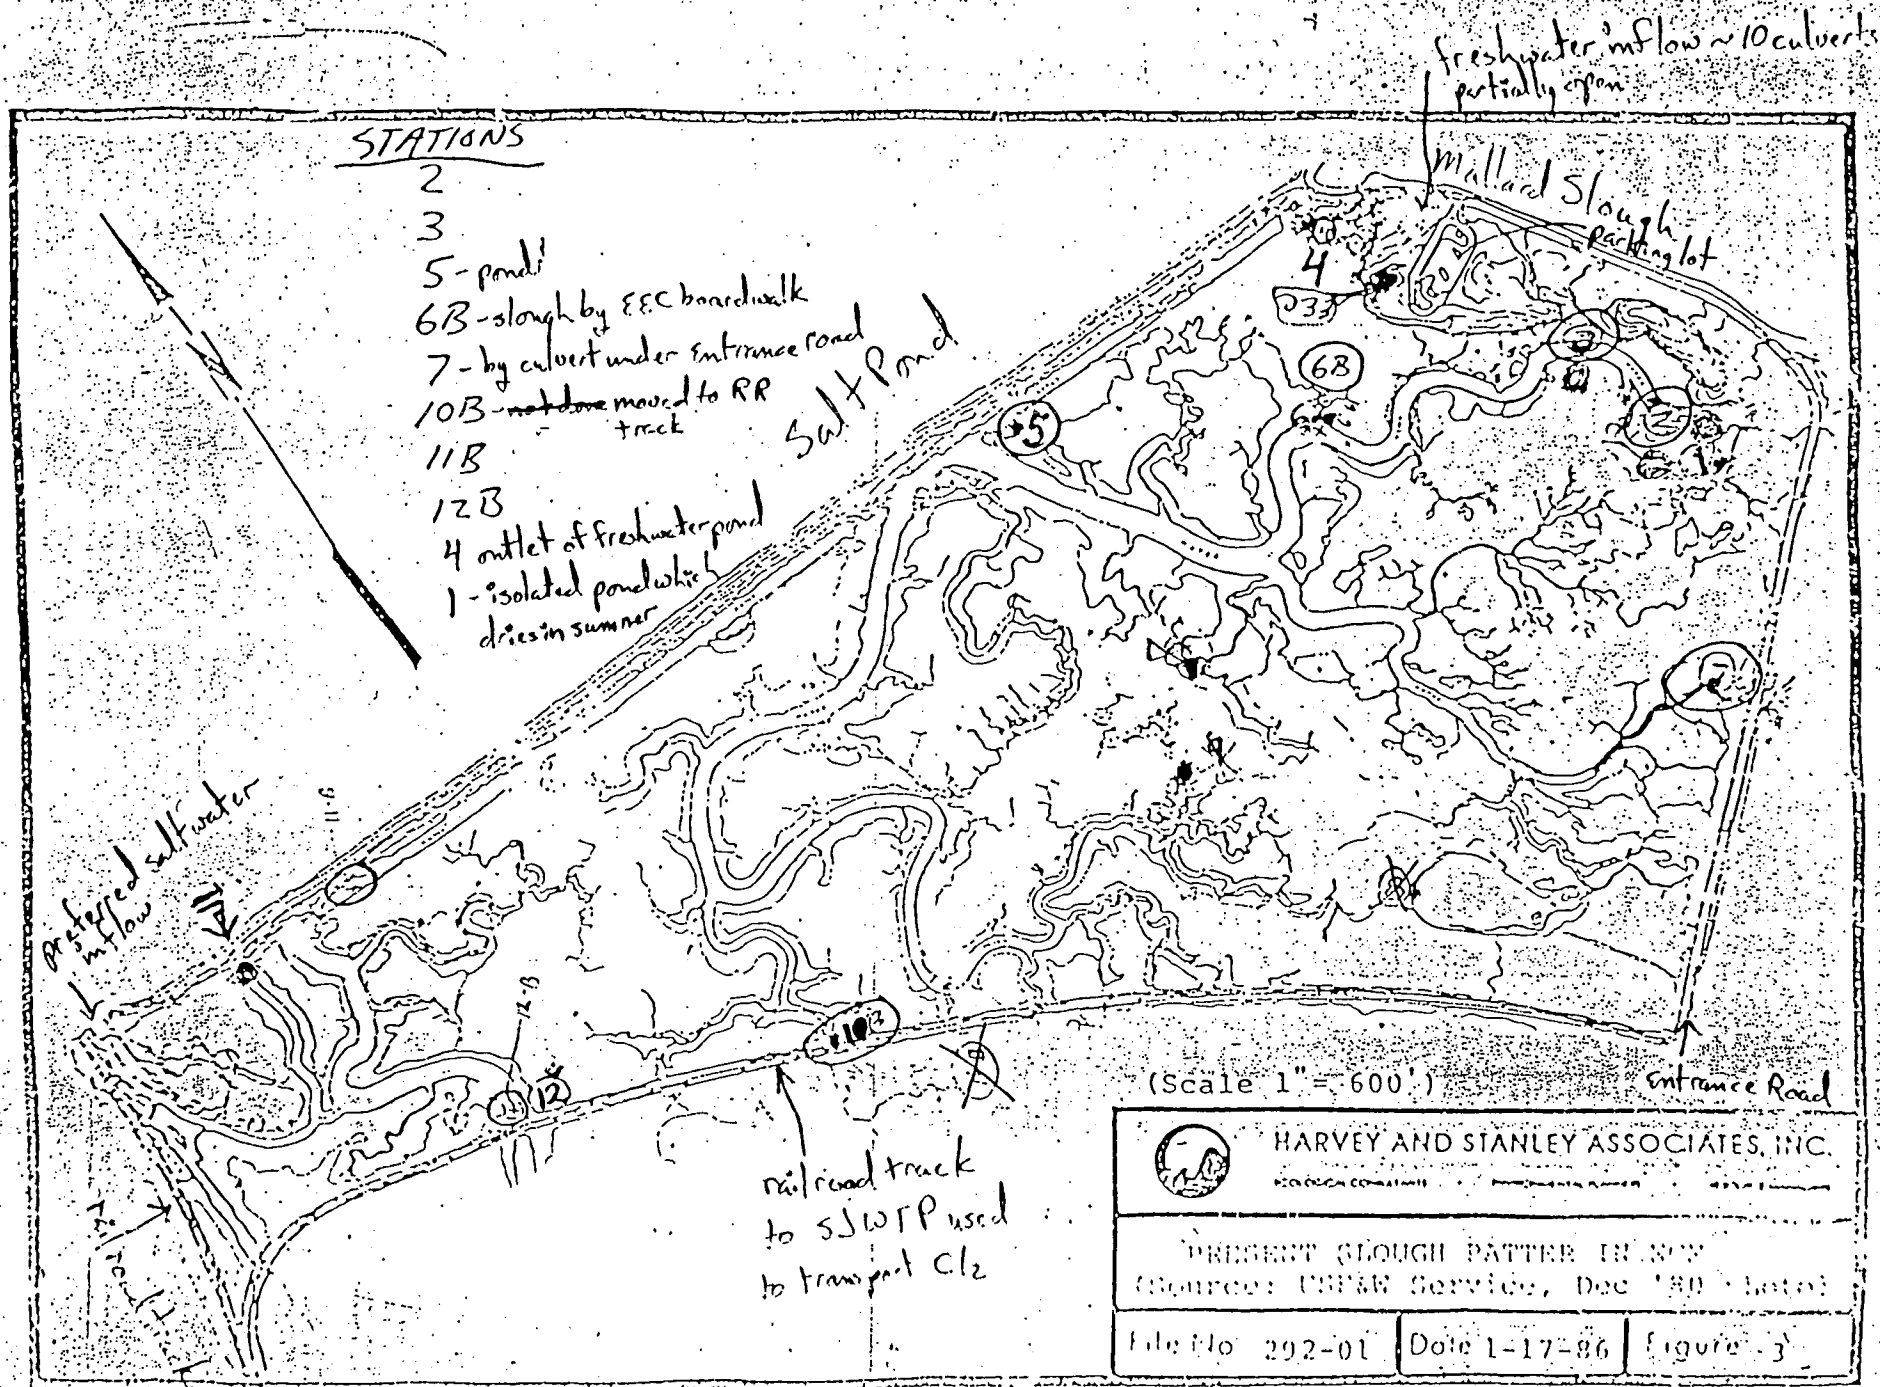 freshwater inflow ~ 10 culverts
partially open
STATIONS
2
3
5 - pond
6B - slough by EEC boardwalk
7 - by culvert under Entrance road
10B - not done moved to RR
track
11B
12B
4 outlet of freshwater pond
1 - isolated pond which
dries in summer
Mallard Slough
parking lot
Salt Pond
4
6B
6
5
2
1
9
preferred saltwater
inflow
11-B
12-B
12
10B
railroad track
to SJWTP used
to transport Cl2
railroad
(Scale 1" = 600')
Entrance Road
HARVEY AND STANLEY ASSOCIATES, INC.
PRESENT SLOUGH PATTER IN
(Source: USF&W Service, Dec '80 Photo)
File No 292-01
Date 1-17-86
Figure 3